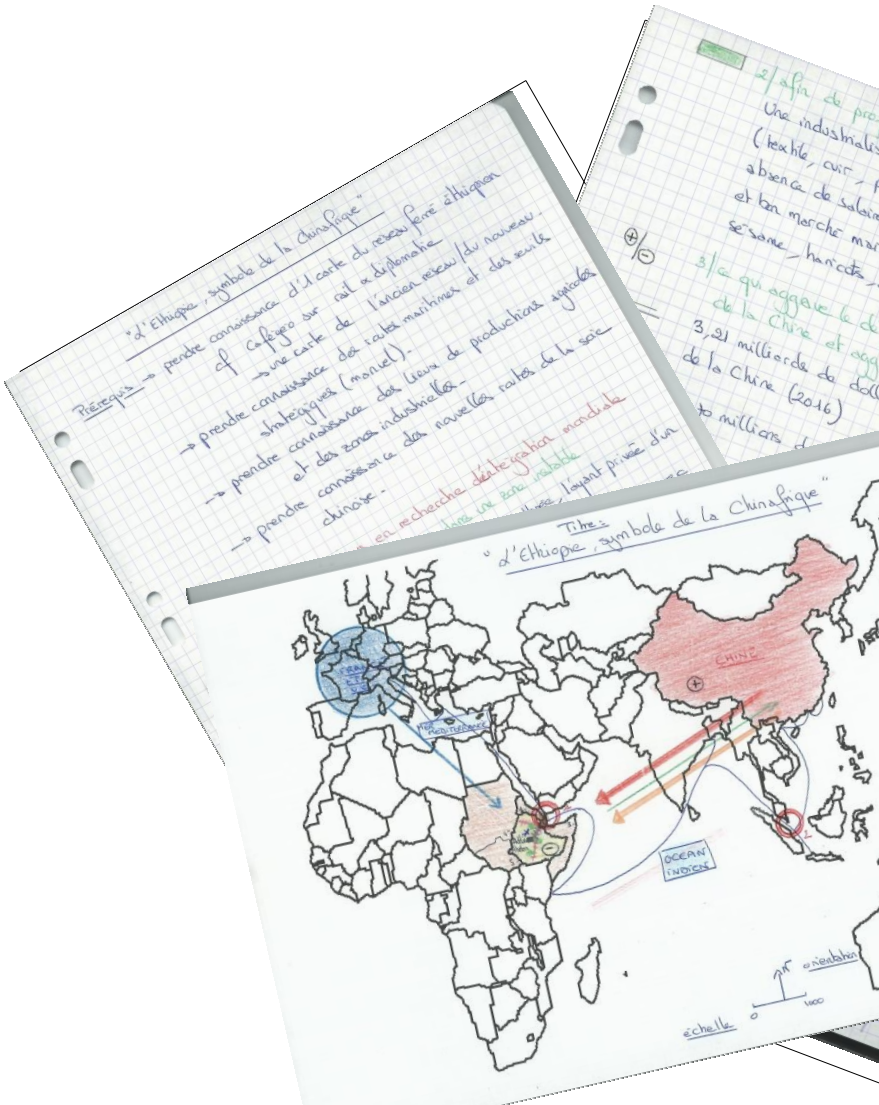 "L'Ethiopie, symbole de la Chinafrique"
Prérequis → prendre connaissance d'1 carte du réseau ferré éthiopien
cf Cafégeo sur rail & diplomatie
→ une carte de l'ancien réseau / du nouveau.
→ prendre connaissance des routes maritimes et des seuils
stratégiques (manuel).
→ prendre connaissance des lieux de productions agricoles
et des zones industrielles.
→ prendre connaissance des nouvelles routes de la soie
chinoise.
en recherche d'intégration mondiale
dans une zone instable
l'ayant privée d'un
2/ afin de pro
Une industrialis
(textile, cuir, p
absence de salair
et bon marché mai
sésame, haricots,
⊕/⊖
3/ ce qui aggrave le dé
de la Chine et agg
3,21 milliards de doll
de la Chine (2016)
millions d
Titre:
"L'Ethiopie, symbole de la Chinafrique"
CHINE
+
MER
MEDITERRANEE
-
2
OCEAN
INDIEN
N orientation
échelle 0 1000